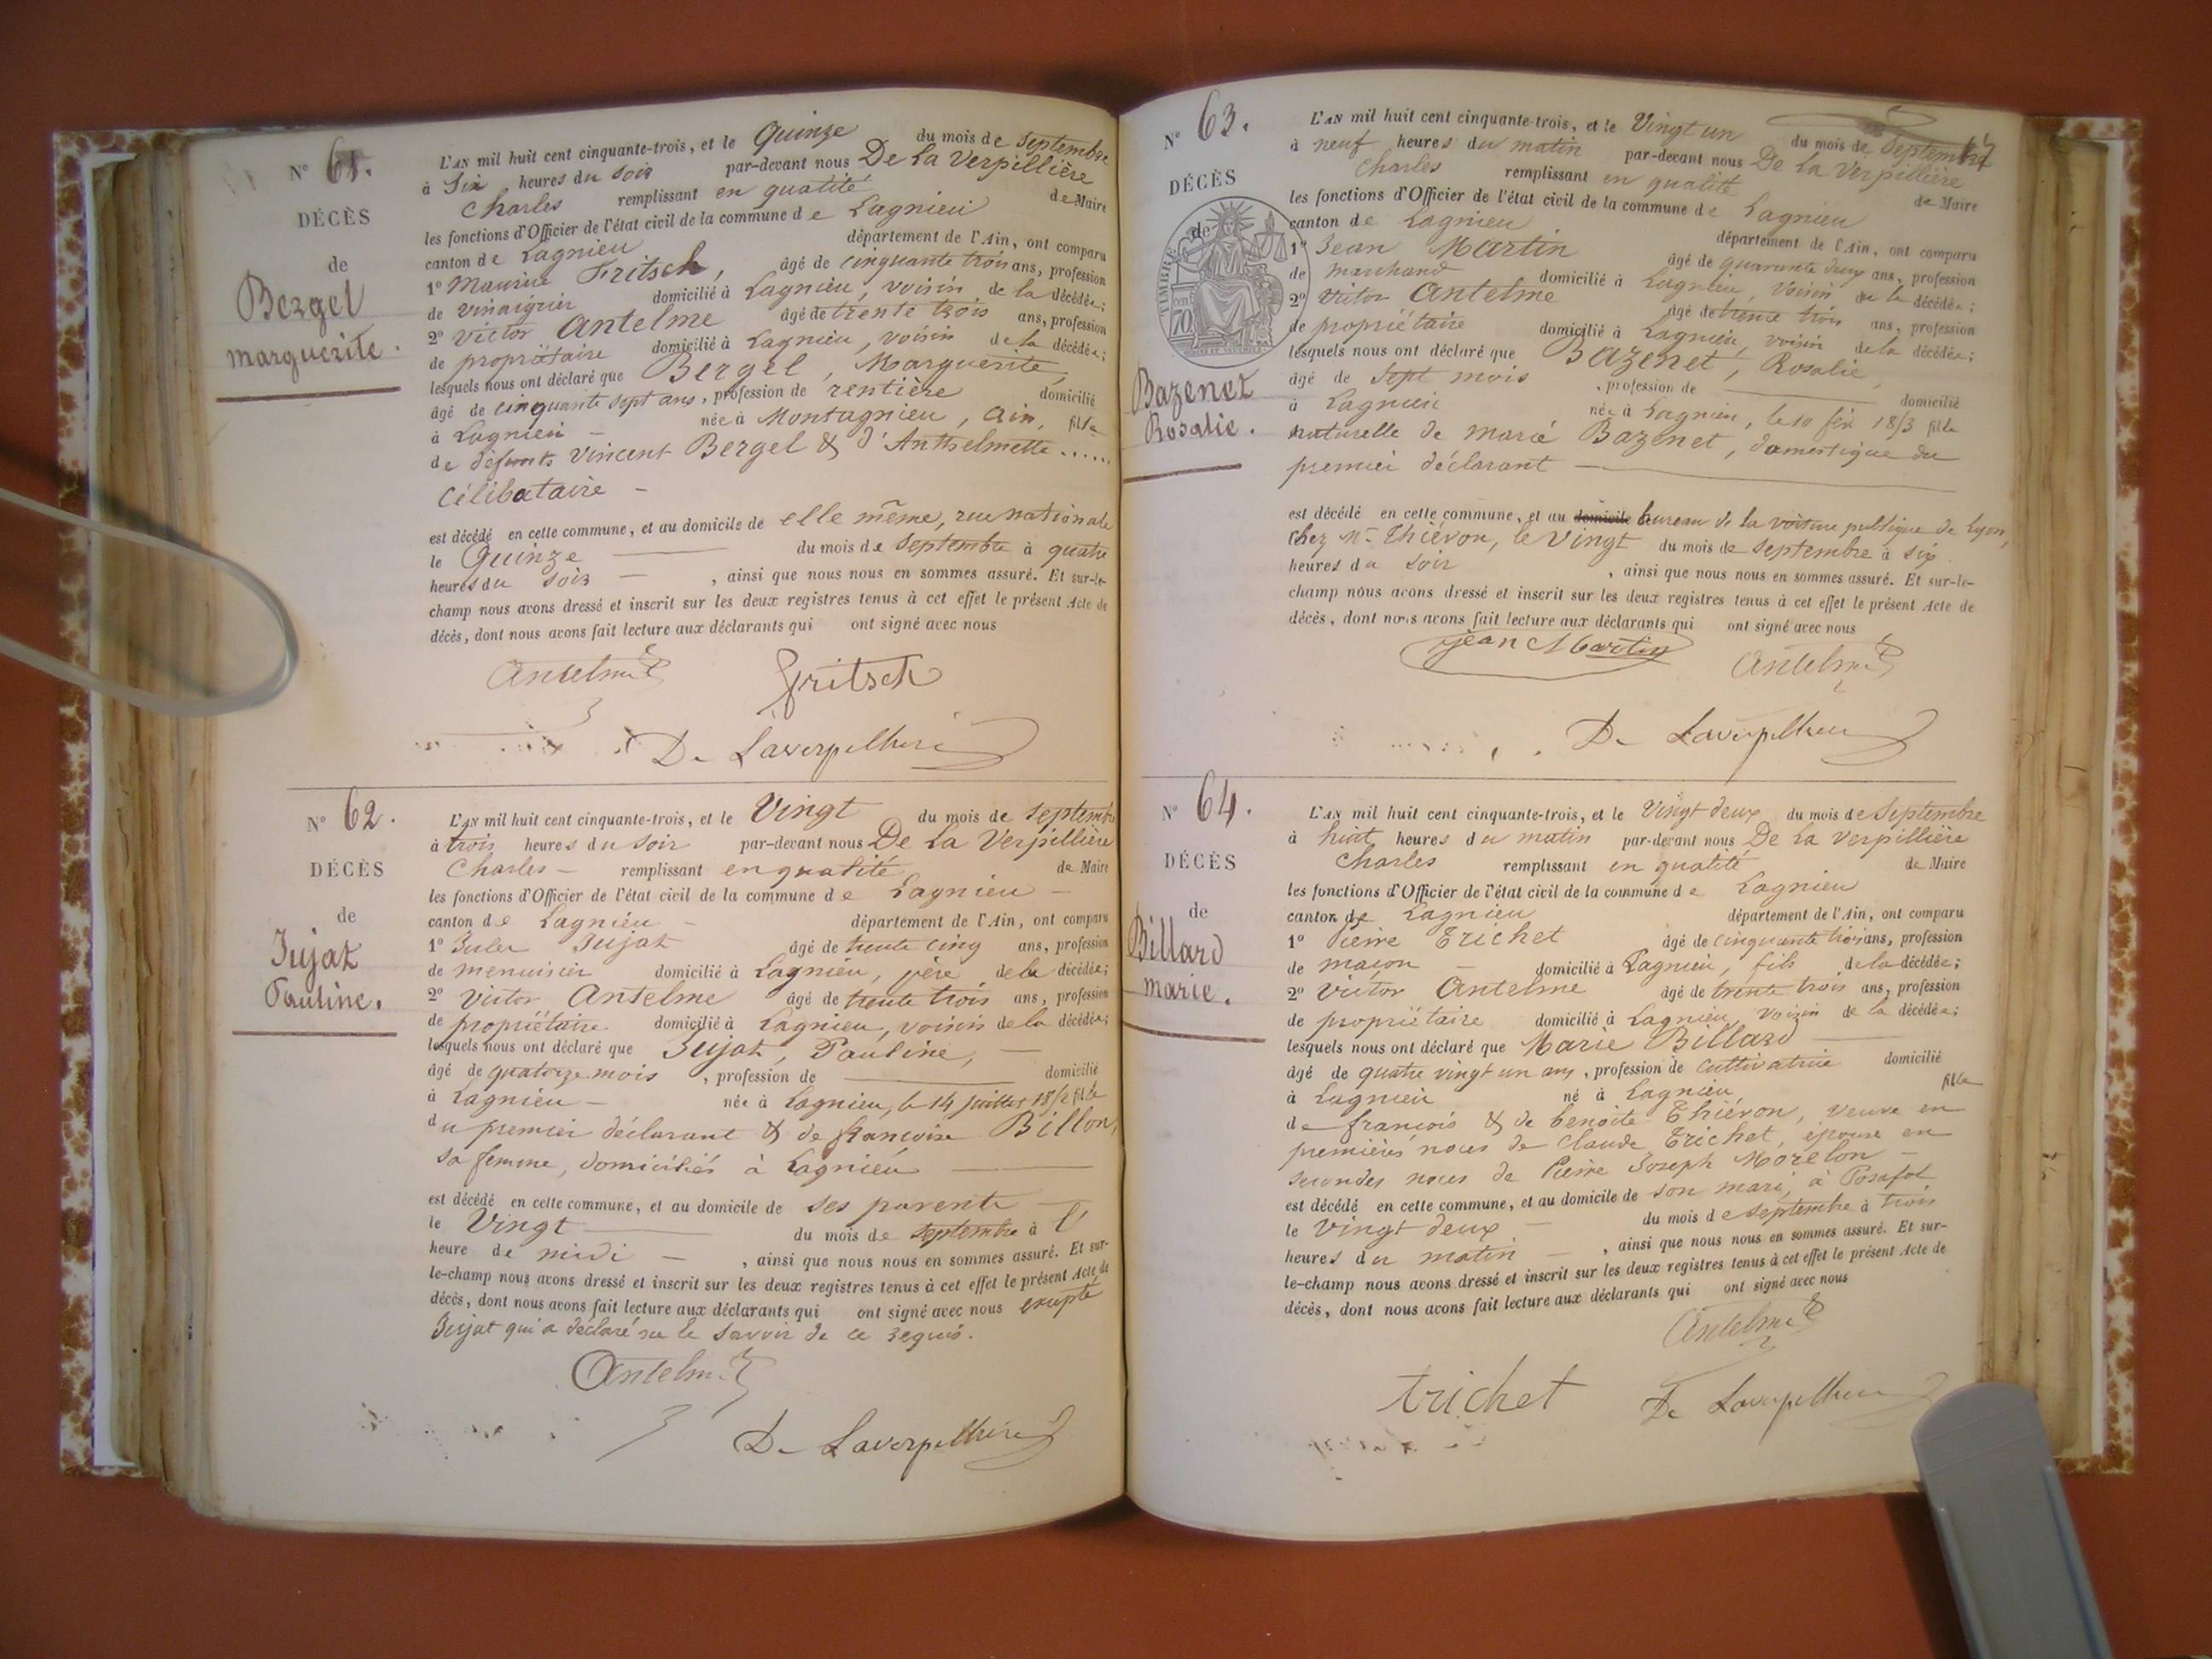 N° 61.
DÉCÈS
de
Bergel
marguerite.
L'AN mil huit cent cinquante-trois, et le Quinze du mois de Septembre
à Six heures du soir par-devant nous De La Verpillière
Charles remplissant en qualité de Maire
les fonctions d'Officier de l'état civil de la commune de Lagnieu
canton de Lagnieu département de l'Ain, ont comparu
1° Maurice Fritsch, âgé de cinquante trois ans, profession
de vinaigrier domicilié à Lagnieu, voisin de la décédée;
2° Victor Antelme âgé de trente trois ans, profession
de propriétaire domicilié à Lagnieu, voisin de la décédée;
lesquels nous ont déclaré que Bergel, Marguerite,
âgé de cinquante sept ans, profession de rentière domicilié
à Lagnieu - née à Montagnieu, Ain, fille
de défunts Vincent Bergel & d'Anthelmette ......
Célibataire -
est décédé en cette commune, et au domicile de elle même, rue nationale
le Quinze du mois de Septembre à quatre
heures du soir - , ainsi que nous nous en sommes assuré. Et sur-le-
champ nous avons dressé et inscrit sur les deux registres tenus à cet effet le présent Acte de
décès, dont nous avons fait lecture aux déclarants qui ont signé avec nous
Antelme Fritsch
De Laverpilliere
N° 62.
DÉCÈS
de
Jujat
Pauline.
L'AN mil huit cent cinquante-trois, et le Vingt du mois de Septembre
à trois heures du soir par-devant nous De La Verpillière
Charles - remplissant en qualité de Maire
les fonctions d'Officier de l'état civil de la commune de Lagnieu -
canton de Lagnieu - département de l'Ain, ont comparu
1° Jules Jujat âgé de trente cinq ans, profession
de menuisier domicilié à Lagnieu, père de la décédée;
2° Victor Antelme âgé de trente trois ans, profession
de propriétaire domicilié à Lagnieu, voisin de la décédée;
lesquels nous ont déclaré que Jujat, Pauline, -
âgé de quatorze mois , profession de domicilié
à Lagnieu - née à Lagnieu, le 14 juillet 1852 fille
du premier déclarant & de françoise Billon,
sa femme, domiciliés à Lagnieu
est décédé en cette commune, et au domicile de ses parents -
le Vingt du mois de septembre à l'
heure de midi - , ainsi que nous nous en sommes assuré. Et sur-
le-champ nous avons dressé et inscrit sur les deux registres tenus à cet effet le présent Acte de
décès, dont nous avons fait lecture aux déclarants qui ont signé avec nous excepté
Jujat qui a déclaré ne le savoir de ce requis.
Antelme
De Laverpilliere
N° 63.
DÉCÈS
de
TIMBRE
70
Bazenet
Rosalie.
L'AN mil huit cent cinquante-trois, et le Vingt un du mois de Septembre
à neuf heures du matin par-devant nous De La Verpillière
Charles remplissant en qualité de Maire
les fonctions d'Officier de l'état civil de la commune de Lagnieu
canton de Lagnieu département de l'Ain, ont comparu
1° Jean Martin âgé de quarante deux ans, profession
de marchand domicilié à Lagnieu, voisin de la décédée;
2° Victor Antelme âgé de trente trois ans, profession
de propriétaire domicilié à Lagnieu, voisin de la décédée;
lesquels nous ont déclaré que Bazenet, Rosalie,
âgé de sept mois , profession de domicilié
à Lagnieu née à Lagnieu, le 10 fév. 1853 fille
naturelle de marie Bazenet, domestique du
premier déclarant
est décédé en cette commune, et au domicile bureau de la voiture publique de Lyon,
chez Mr Thiévon, le Vingt du mois de septembre à six
heures du soir , ainsi que nous nous en sommes assuré. Et sur-le-
champ nous avons dressé et inscrit sur les deux registres tenus à cet effet le présent Acte de
décès, dont nous avons fait lecture aux déclarants qui ont signé avec nous
jean Martin Antelme
De Laverpilliere
N° 64.
DÉCÈS
de
Billard
marie.
L'AN mil huit cent cinquante-trois, et le Vingt deux du mois de Septembre
à huit heures du matin par-devant nous De La Verpillière
Charles remplissant en qualité de Maire
les fonctions d'Officier de l'état civil de la commune de Lagnieu
canton de Lagnieu département de l'Ain, ont comparu
1° Pierre Trichet âgé de cinquante trois ans, profession
de maçon - domicilié à Lagnieu, fils de la décédée;
2° Victor Antelme âgé de trente trois ans, profession
de propriétaire domicilié à Lagnieu, voisin de la décédée;
lesquels nous ont déclaré que Marie Billard
âgé de quatre vingt un ans, profession de cultivatrice domicilié
à Lagnieu né à Lagnieu fille
de françois & de benoite Thiévon, veuve en
premières noces de Claude Trichet, épouse en
secondes noces de Pierre Joseph Morelon -
est décédé en cette commune, et au domicile de son mari, à Posafol
le Vingt deux - du mois de septembre à trois
heures du matin - , ainsi que nous nous en sommes assuré. Et sur-
le-champ nous avons dressé et inscrit sur les deux registres tenus à cet effet le présent Acte de
décès, dont nous avons fait lecture aux déclarants qui ont signé avec nous
Antelme
trichet De Laverpilliere